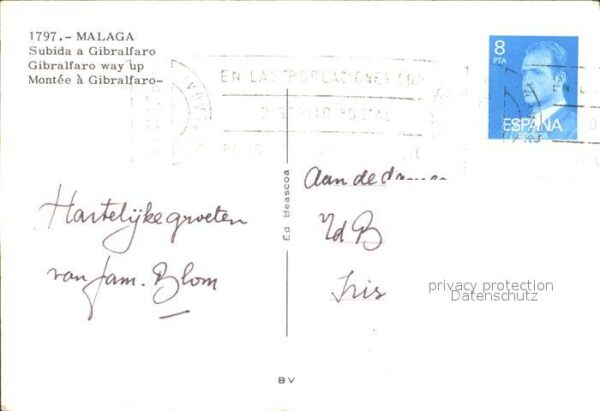 1797.- MALAGA
Subida a Gibralfaro
Gibralfaro way up
Montée à Gibralfaro-
EN LAS POBLACIONES CON
DISTRITO POSTAL
8
PTA
ESPAÑA
CORREOS
Hartelijke groeten
van fam. Blom
Ed. Beascoa
Aan de dames
v/d B
Iris
privacy protection
Datenschutz
BV